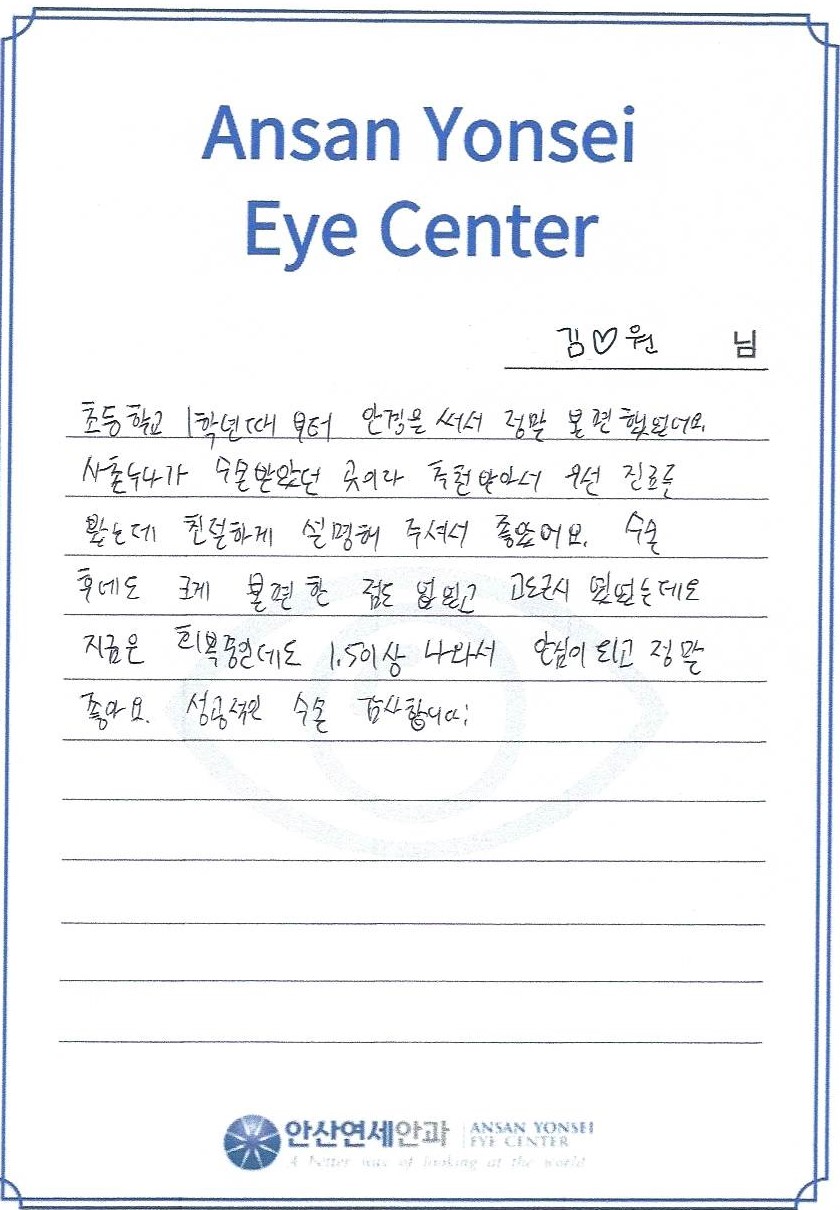 Ansan Yonsei
Eye Center
김♡원 님
초등학교 1학년때 부터 안경을 써서 정말 불편했었어요.
사촌누나가 수술받았던 곳이라 추천받아서 우선 진료를
봤는데 친절하게 설명해 주셔서 좋았어요. 수술
후에도 크게 불편한 점도 없었고 고도근시 였었는데도
지금은 회복중인데도 1.5이상 나와서 안심이 되고 정말
좋아요. 성공적인 수술 감사합니다!
안산연세안과 ANSAN YONSEI
EYE CENTER
A better way of looking at the world